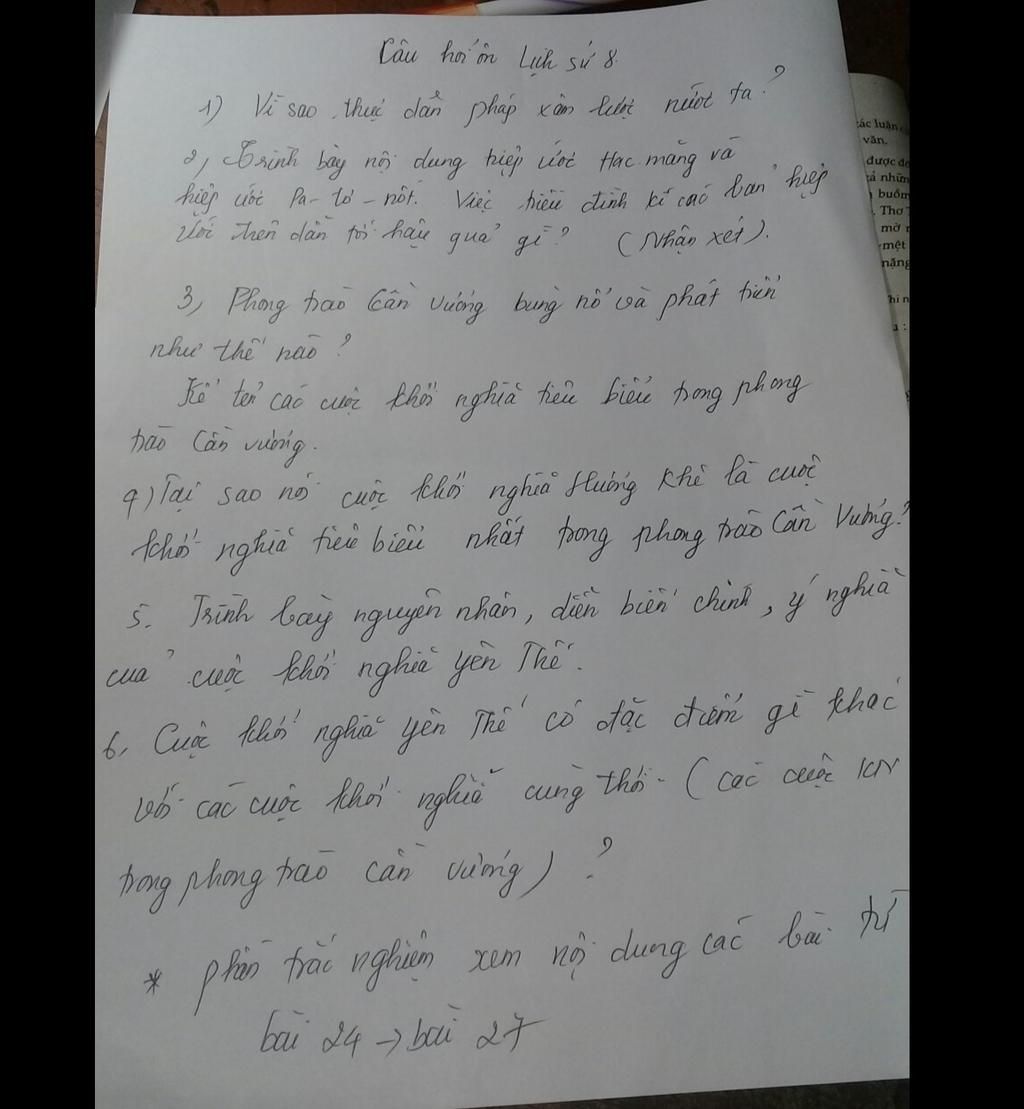 Câu hỏi ôn Lịch sử 8.
1) Vì sao thực dân pháp xâm lược nước ta?
2, Trình bày nội dung hiệp ước Hac măng và
hiệp ước Pa-tơ-nốt. Việc triều đình kí các bản hiệp
ước trên dẫn tới hậu quả gì? (Nhận xét).
3, Phong trào Cần vương bùng nổ và phát triển
như thế nào?
Kể tên các cuộc khởi nghĩa tiêu biểu trong phong
trào Cần vương.
4) Tại sao nói cuộc khởi nghĩa Hương Khê là cuộc
khởi nghĩa tiêu biểu nhất trong phong trào Cần Vương?
5. Trình bày nguyên nhân, diễn biến chính, ý nghĩa
của cuộc khởi nghĩa yên Thế.
6, Cuộc khởi nghĩa yên Thế có đặc điểm gì khác
với các cuộc khởi nghĩa cùng thời - (các cuộc KN
trong phong trào cần vương) ?
* phần trắc nghiệm xem nội dung các bài từ
bài 24 → bài 27
ác luận
văn.
được
những
buồm
. Thơ
mờ
mệt
nặng